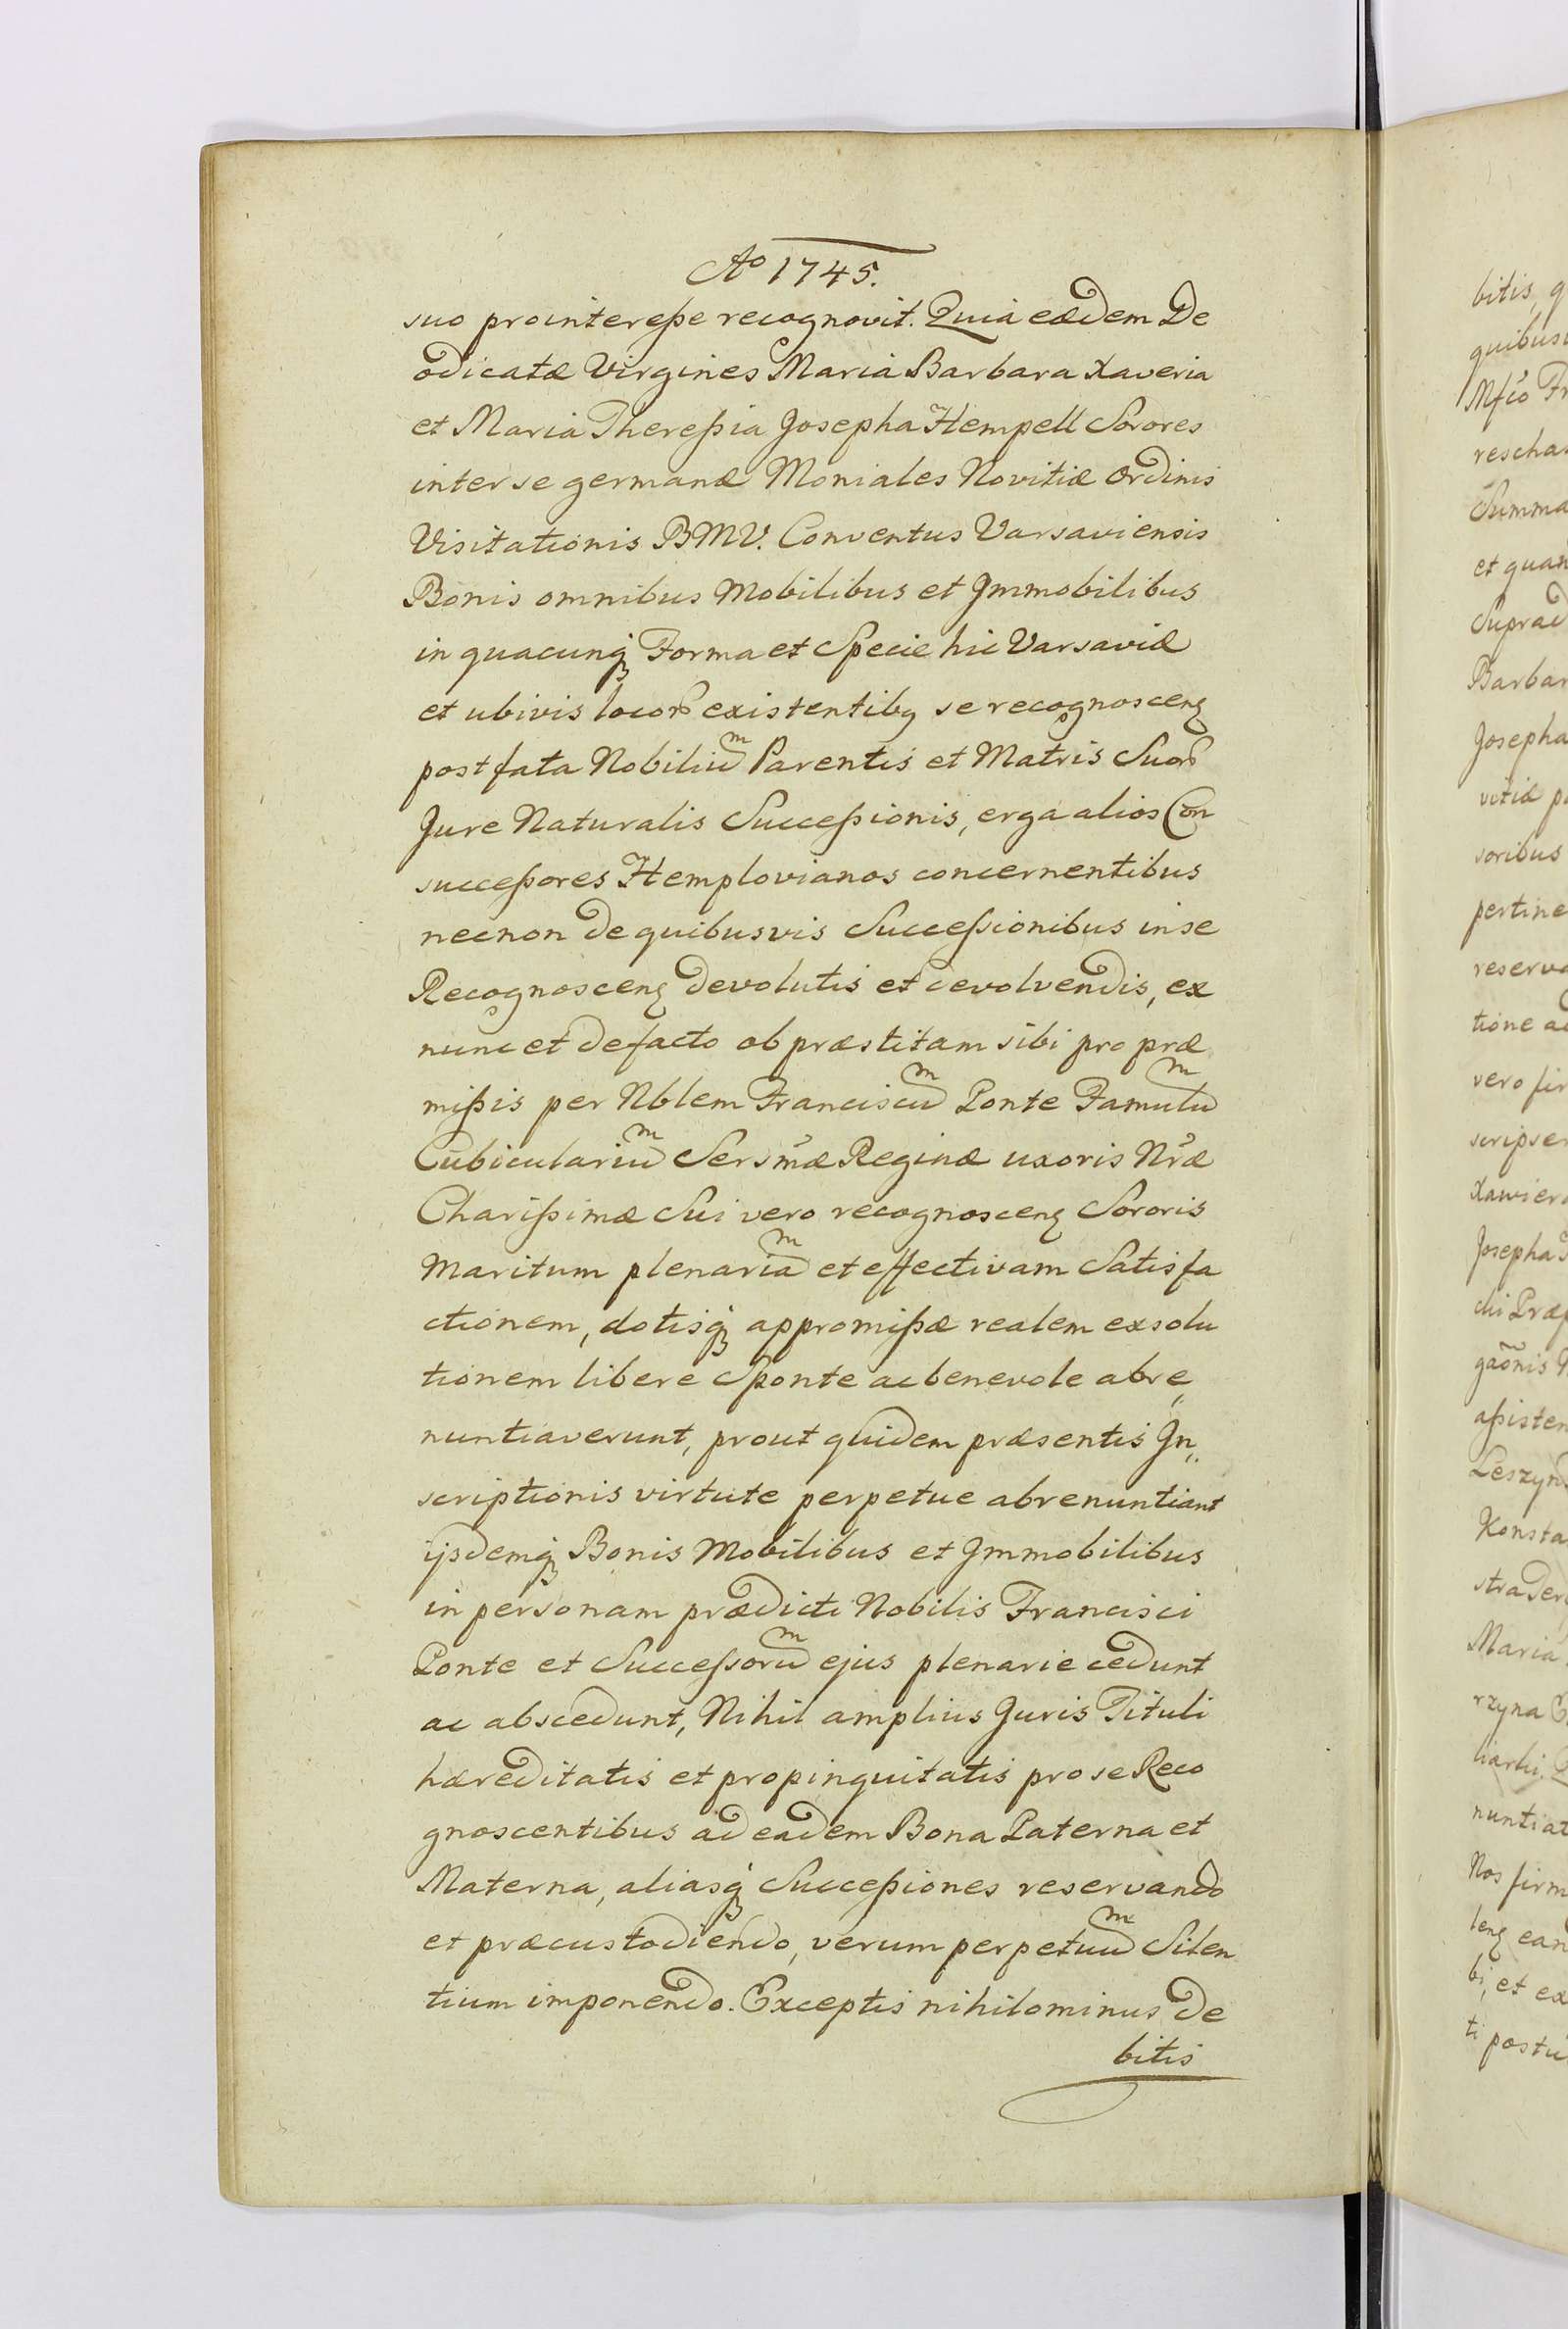 Ao 1745.
suo prointeresse recognovit. Quia eædem De
odicatæ Virgines Maria Barbara Xaveria
et Maria Theressia Josepha Hempell Sorores
inter se germanæ Moniales Novitiæ Ordinis
Visitationis BMV. Conventus Varsaviensis
Bonis omnibus Mobilibus et Immobilibus
in quacunq̨ Forma et Specie hic Varsaviæ
et ubivis locorꝝ existentibꝯ se recognoscenꝭ
post fata Nobiliūm Parentis et Matris Suorꝝ
Jure Naturalis Successionis, erga alios Con
successores Hemplovianos concernentibus
necnon de quibusvis Successionibus in se
Recognoscenꝭ devolutis et devolvendis, ex
nunc et de facto ob præstitam sibi pro præ
missis per Nblem Franciscum Ponte Famulum
Cubicularium Sersmæ Reginæ uxoris Nræ
Charissimæ Sui vero recognoscenꝭ Sororis
Maritum plenariam et effectivam Satisfa
ctionem, dotisq̨ appromissæ realem exsolu
tionem libere Sponte ac benevole abre„
nuntiaverunt, prout quidem præsentis In„
scriptionis virtute perpetue abrenuntiant
ijsdemq̨ Bonis Mobilibus et Immobilibus
in personam prædicti Nobilis Francisci
Ponte et Successorum ejus plenarie cedunt
ac abscedunt, Nihil amplius Juris Tituli
hæreditatis et propinquitatis pro se Reco
gnoscentibus ad eadem Bona Paterna et
Materna, aliasq̨ Successiones reservando
et præcustodiendo, verum perpetuum Silen
tium imponendo. Exceptis nihilominus de
bitis
bitis, q
quibus
Mfco Fr
rescha
Summa
et quan
Suprad
Barbar
Josepha
vitiæ p
soribus
pertine
reserva
tione a
vero fir
scripser
Xawier
Josepha
chi Præ
gaonis
assisten
Leszyn
Konsta
strader
Maria
rzyna
nuntiat
Nos firm
lenꝭ ean
bi, et ex
ti postu